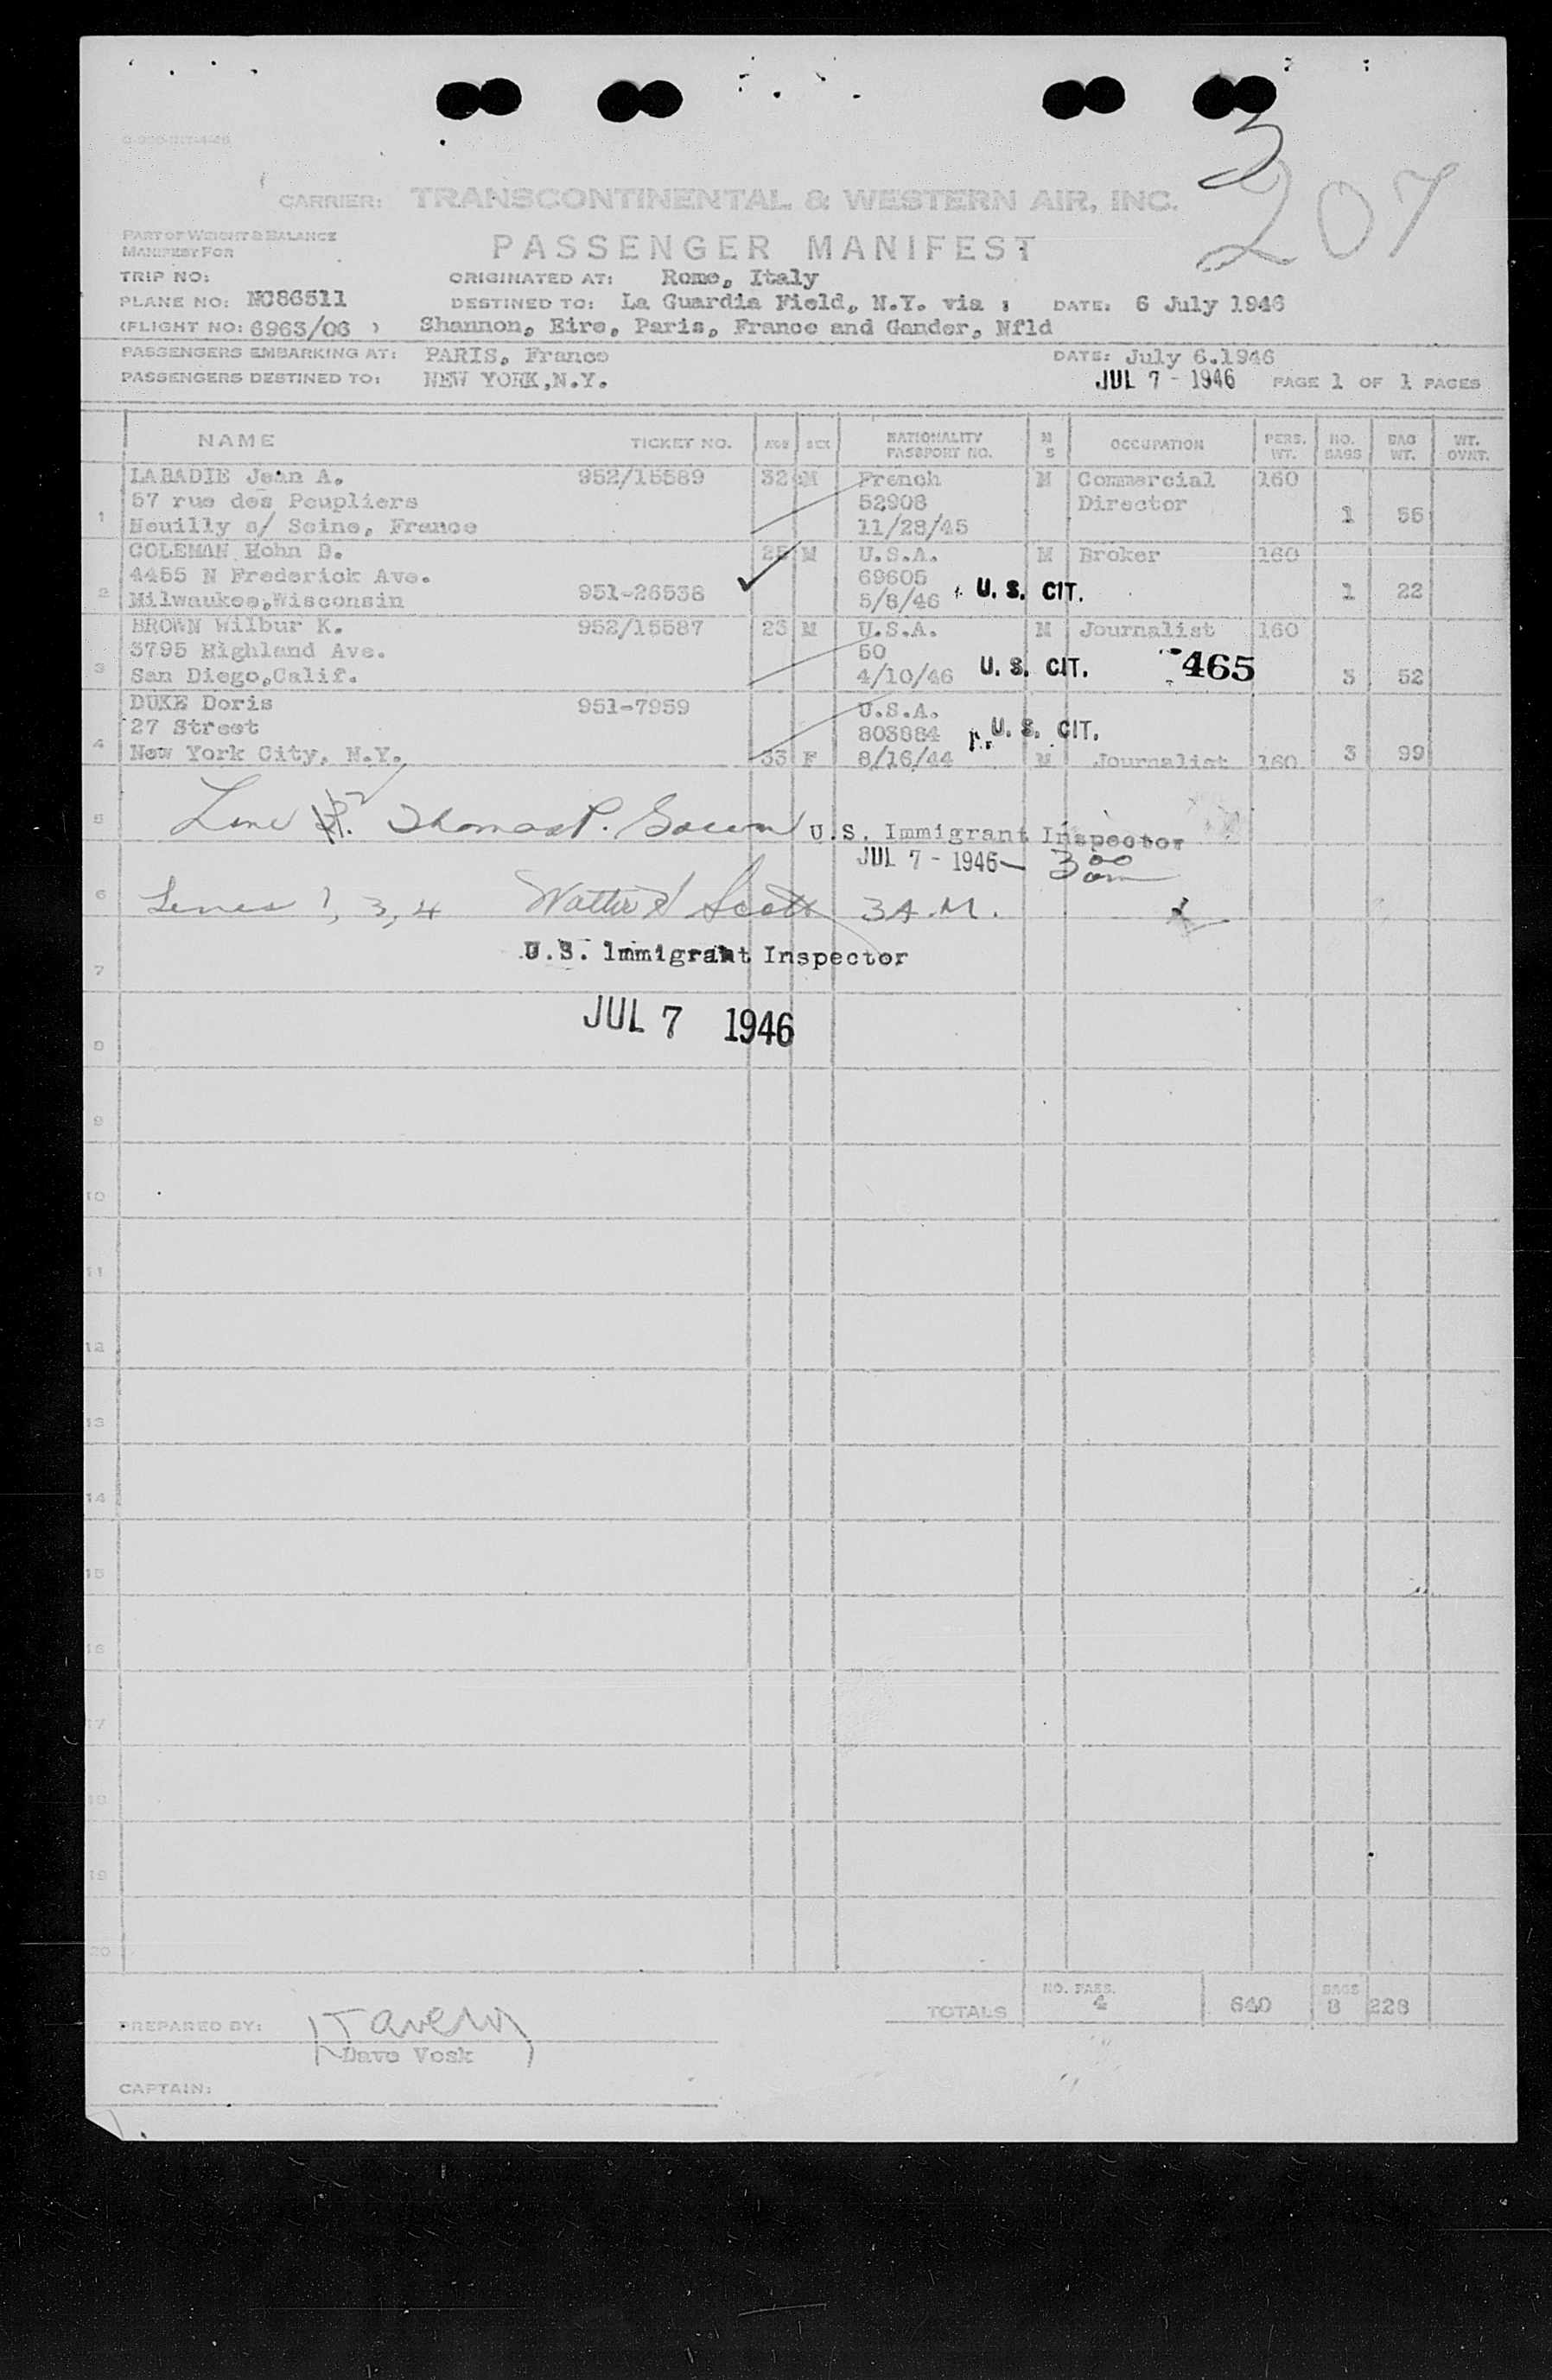 3
207
CARRIER: TRANSCONTINENTAL & WESTERN AIR, INC.
PART OF WEIGHT & BALANCE
MANIFEST FOR
PASSENGER MANIFEST
TRIP NO: ORIGINATED AT: Rome, Italy
PLANE NO: NC86511 DESTINED TO: La Guardia Field, N.Y. via : DATE: 6 July 1946
(FLIGHT NO: 6963/06 ) Shannon, Eire, Paris, France and Gander, Nfld
PASSENGERS EMBARKING AT: PARIS, France DATE: July 6.1946
PASSENGERS DESTINED TO: NEW YORK,N.Y. JUL 7 - 1946 PAGE 1 OF 1 PAGES
NAME TICKET NO. AGE SEX NATIONALITY PASSPORT NO. M S OCCUPATION PERS. WT. NO. BAGS BAG WT. WT. OVNT.
LABADIE Jean A. 952/15589 32 M French M Commercial 160
57 rue des Peupliers 52908 Director
1 Neuilly s/ Seine, France 11/28/45 1 55
COLEMAN Hohn B. M U.S.A. M Broker 160
4455 N Frederick Ave. 69605
2 Milwaukee,Wisconsin 951-26538 5/8/46 U. S. CIT. 1 22
BROWN Wilbur K. 952/15587 23 M U.S.A. M Journalist 160
3795 Highland Ave. 50
3 San Diego,Calif. 4/10/46 U. S. CIT. 465 3 52
DUKE Doris 951-7959 U.S.A.
27 Street 803884 U. S. CIT.
4 New York City, N.Y. 33 F 8/16/44 M Journalist 160 3 99
5 Line 2. Thomas P. U.S. Immigrant Inspector
JUL 7 - 1946 - 3 00 am
6 Lines 1, 3, 4 Walter Scott 3 A.M.
U.S. Immigrant Inspector
7
JUL 7 1946
8
9
10
11
12
13
14
15
16
17
18
19
20
TOTALS NO. PASS. 4 640 BAGS 8 228
PREPARED BY:
Dave Vosk
CAPTAIN: